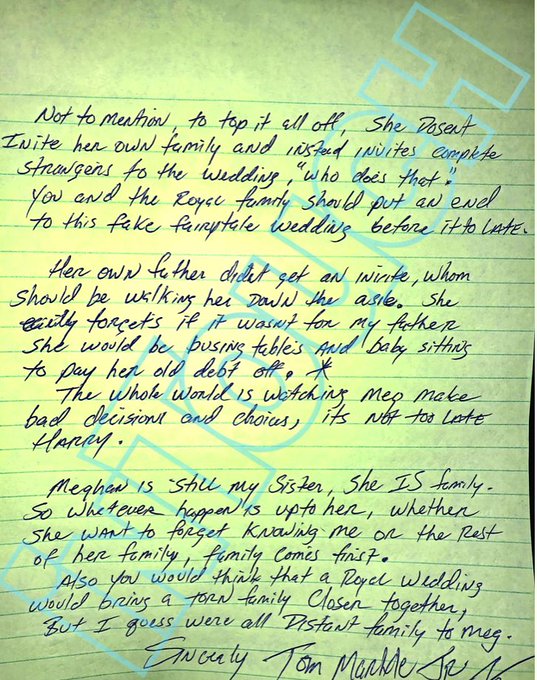 Not to mention, to top it all off, She Dosent
Inite her own family and instead invites complete
strangers to the wedding, "who does that."
You and the Royal family should put an end
to this fake fairytale wedding before it to LATE.
Her own father didnt get an invite, whom
should be walking her Down the asle. She
forgets if it wasnt for my father
She would be busing tables AND baby sitting
to pay her old debt off. *
The whole world is watching Meg make
bad decisions and choices, its NOT too LATE
HARRY.
Meghan is still my Sister, She IS family.
So whatever happen is upto her, whether
She WANT to forget knowing me or the Rest
of her family, family comes first.
Also you would think that a Royal wedding
would bring a TORN family Closer together,
But I guess were all Distant family to Meg.
Sincerly Tom Markle Jr
INTOUCH